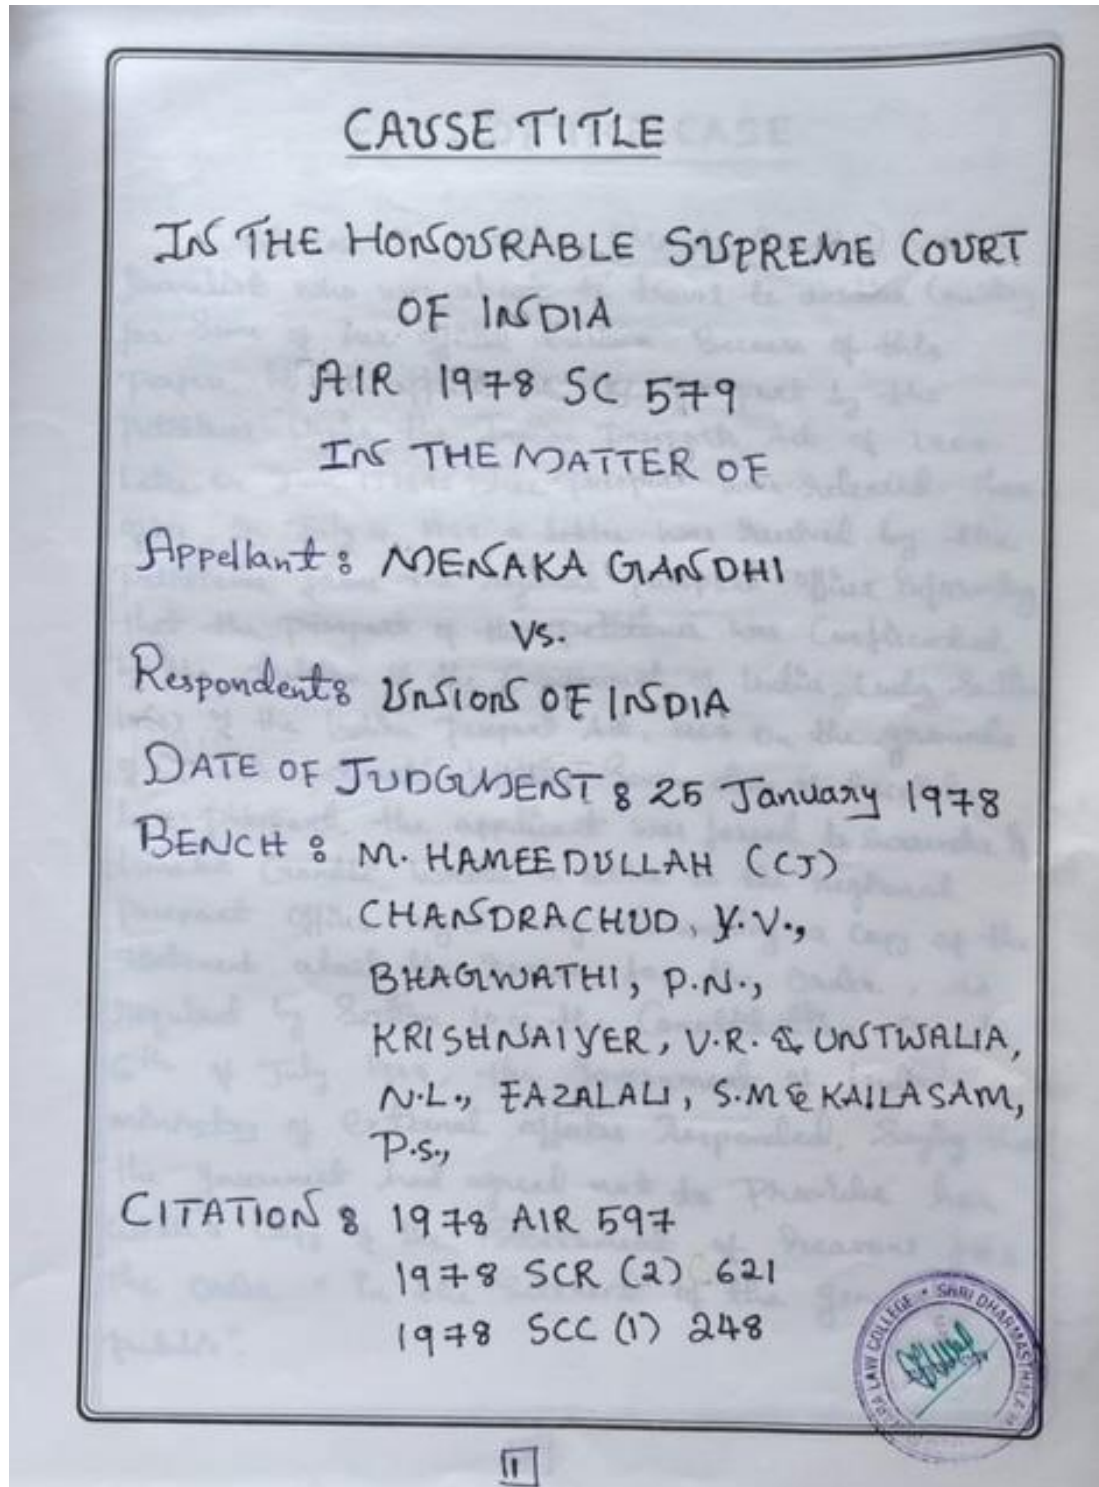 CAUSE TITLE
IN THE HONOURABLE SUPREME COURT
OF INDIA
AIR 1978 SC 579
IN THE MATTER OF
Appellant : MENAKA GANDHI
VS.
Respondent : UNION OF INDIA
DATE OF JUDGMENT : 25 January 1978
BENCH : M. HAMEEDULLAH (CJ)
CHANDRACHUD, Y.V.,
BHAGWATHI, P.N.,
KRISHNAIYER, V.R. & UNTWALIA,
N.L., FAZALALI, S.M & KAILASAM,
P.S.,
CITATION : 1978 AIR 597
1978 SCR (2) 621
1978 SCC (1) 248
LAW COLLEGE * SHRI DHARMASTHALA
11